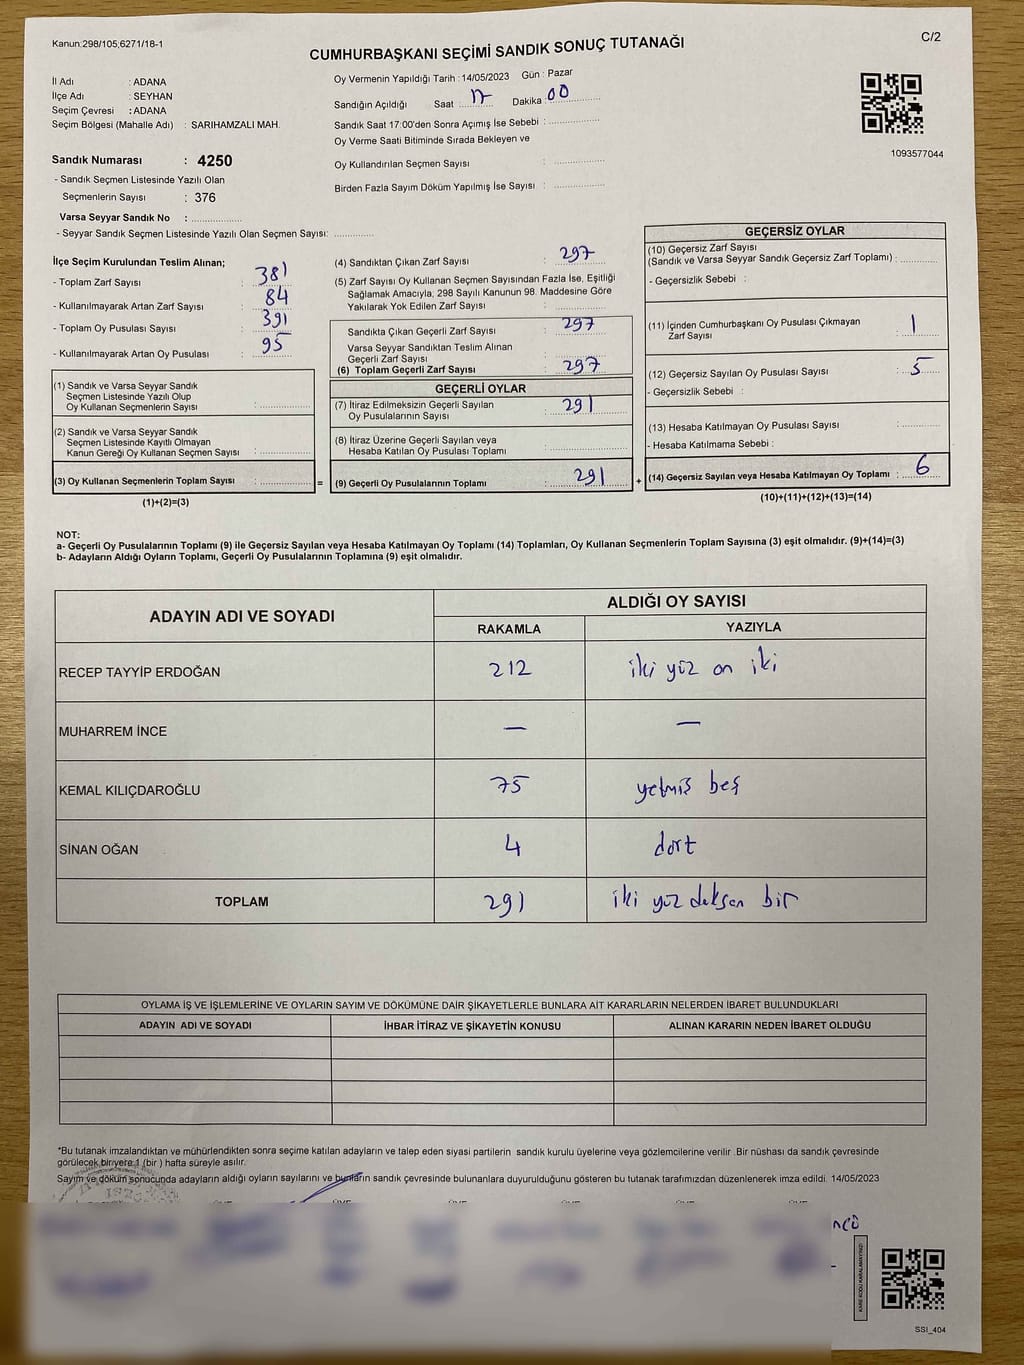 Kanun:298/105;6271/18-1
C/2
CUMHURBAŞKANI SEÇİMİ SANDIK SONUÇ TUTANAĞI
İl Adı : ADANA
İlçe Adı : SEYHAN
Seçim Çevresi : ADANA
Seçim Bölgesi (Mahalle Adı) : SARIHAMZALI MAH.
Sandık Numarası : 4250
- Sandık Seçmen Listesinde Yazılı Olan
Seçmenlerin Sayısı : 376
Varsa Seyyar Sandık No :
- Seyyar Sandık Seçmen Listesinde Yazılı Olan Seçmen Sayısı:
Oy Vermenin Yapıldığı Tarih : 14/05/2023 Gün : Pazar
Sandığın Açıldığı Saat 17 Dakika : 00
Sandık Saat 17:00'den Sonra Açımış İse Sebebi :
Oy Verme Saati Bitiminde Sırada Bekleyen ve
Oy Kullandırılan Seçmen Sayısı :
Birden Fazla Sayım Döküm Yapılmış İse Sayısı :
1093577044
İlçe Seçim Kurulundan Teslim Alınan;
- Toplam Zarf Sayısı : 381
- Kullanılmayarak Artan Zarf Sayısı : 84
- Toplam Oy Pusulası Sayısı : 391
- Kullanılmayarak Artan Oy Pusulası : 95
(1) Sandık ve Varsa Seyyar Sandık
Seçmen Listesinde Yazılı Olup
Oy Kullanan Seçmenlerin Sayısı :
(2) Sandık ve Varsa Seyyar Sandık
Seçmen Listesinde Kayıtlı Olmayan
Kanun Gereği Oy Kullanan Seçmen Sayısı :
(3) Oy Kullanan Seçmenlerin Toplam Sayısı : =
(1)+(2)=(3)
(4) Sandıktan Çıkan Zarf Sayısı : 297
(5) Zarf Sayısı Oy Kullanan Seçmen Sayısından Fazla İse, Eşitliği
Sağlamak Amacıyla, 298 Sayılı Kanunun 98. Maddesine Göre
Yakılarak Yok Edilen Zarf Sayısı :
Sandıkta Çıkan Geçerli Zarf Sayısı : 297
Varsa Seyyar Sandıktan Teslim Alınan
Geçerli Zarf Sayısı :
(6) Toplam Geçerli Zarf Sayısı : 297
GEÇERLİ OYLAR
(7) İtiraz Edilmeksizin Geçerli Sayılan : 291
Oy Pusulalarının Sayısı
(8) İtiraz Üzerine Geçerli Sayılan veya
Hesaba Katılan Oy Pusulası Toplamı :
(9) Geçerli Oy Pusulalarının Toplamı : 291 +
GEÇERSİZ OYLAR
(10) Geçersiz Zarf Sayısı
(Sandık ve Varsa Seyyar Sandık Geçersiz Zarf Toplamı) :
- Geçersizlik Sebebi :
(11) İçinden Cumhurbaşkanı Oy Pusulası Çıkmayan : 1
Zarf Sayısı
(12) Geçersiz Sayılan Oy Pusulası Sayısı : 5
- Geçersizlik Sebebi :
(13) Hesaba Katılmayan Oy Pusulası Sayısı :
- Hesaba Katılmama Sebebi :
(14) Geçersiz Sayılan veya Hesaba Katılmayan Oy Toplamı : 6
(10)+(11)+(12)+(13)=(14)
NOT:
a- Geçerli Oy Pusulalarının Toplamı (9) ile Geçersiz Sayılan veya Hesaba Katılmayan Oy Toplamı (14) Toplamları, Oy Kullanan Seçmenlerin Toplam Sayısına (3) eşit olmalıdır. (9)+(14)=(3)
b- Adayların Aldığı Oyların Toplamı, Geçerli Oy Pusulalarının Toplamına (9) eşit olmalıdır.
ADAYIN ADI VE SOYADI ALDIĞI OY SAYISI
RAKAMLA YAZIYLA
RECEP TAYYİP ERDOĞAN 212 iki yüz on iki
MUHARREM İNCE — —
KEMAL KILIÇDAROĞLU 75 yetmiş beş
SİNAN OĞAN 4 dört
TOPLAM 291 iki yüz doksan bir
OYLAMA İŞ VE İŞLEMLERİNE VE OYLARIN SAYIM VE DÖKÜMÜNE DAİR ŞİKAYETLERLE BUNLARA AİT KARARLARIN NELERDEN İBARET BULUNDUKLARI
ADAYIN ADI VE SOYADI İHBAR İTİRAZ VE ŞİKAYETİN KONUSU ALINAN KARARIN NEDEN İBARET OLDUĞU
*Bu tutanak imzalandıktan ve mühürlendikten sonra seçime katılan adayların ve talep eden siyasi partilerin sandık kurulu üyelerine veya gözlemcilerine verilir .Bir nüshası da sandık çevresinde
görülecek biryere 1 (bir ) hafta süreyle asılır.
Sayım ve döküm sonucunda adayların aldığı oyların sayılarını ve bunların sandık çevresinde bulunanlara duyurulduğunu gösteren bu tutanak tarafımızdan düzenlenerek imza edildi. 14/05/2023
KARE KODU KARALAMAYINIZ!
SSI_404